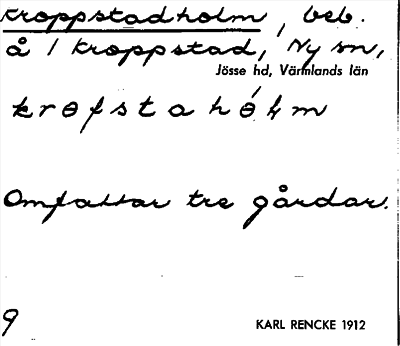 Kroppstadholm, beb.
å 1 Kroppstad, Ny sn,
Jösse hd, Värmlands län
Omfattar tre gårdar.
9
KARL RENCKE 1912